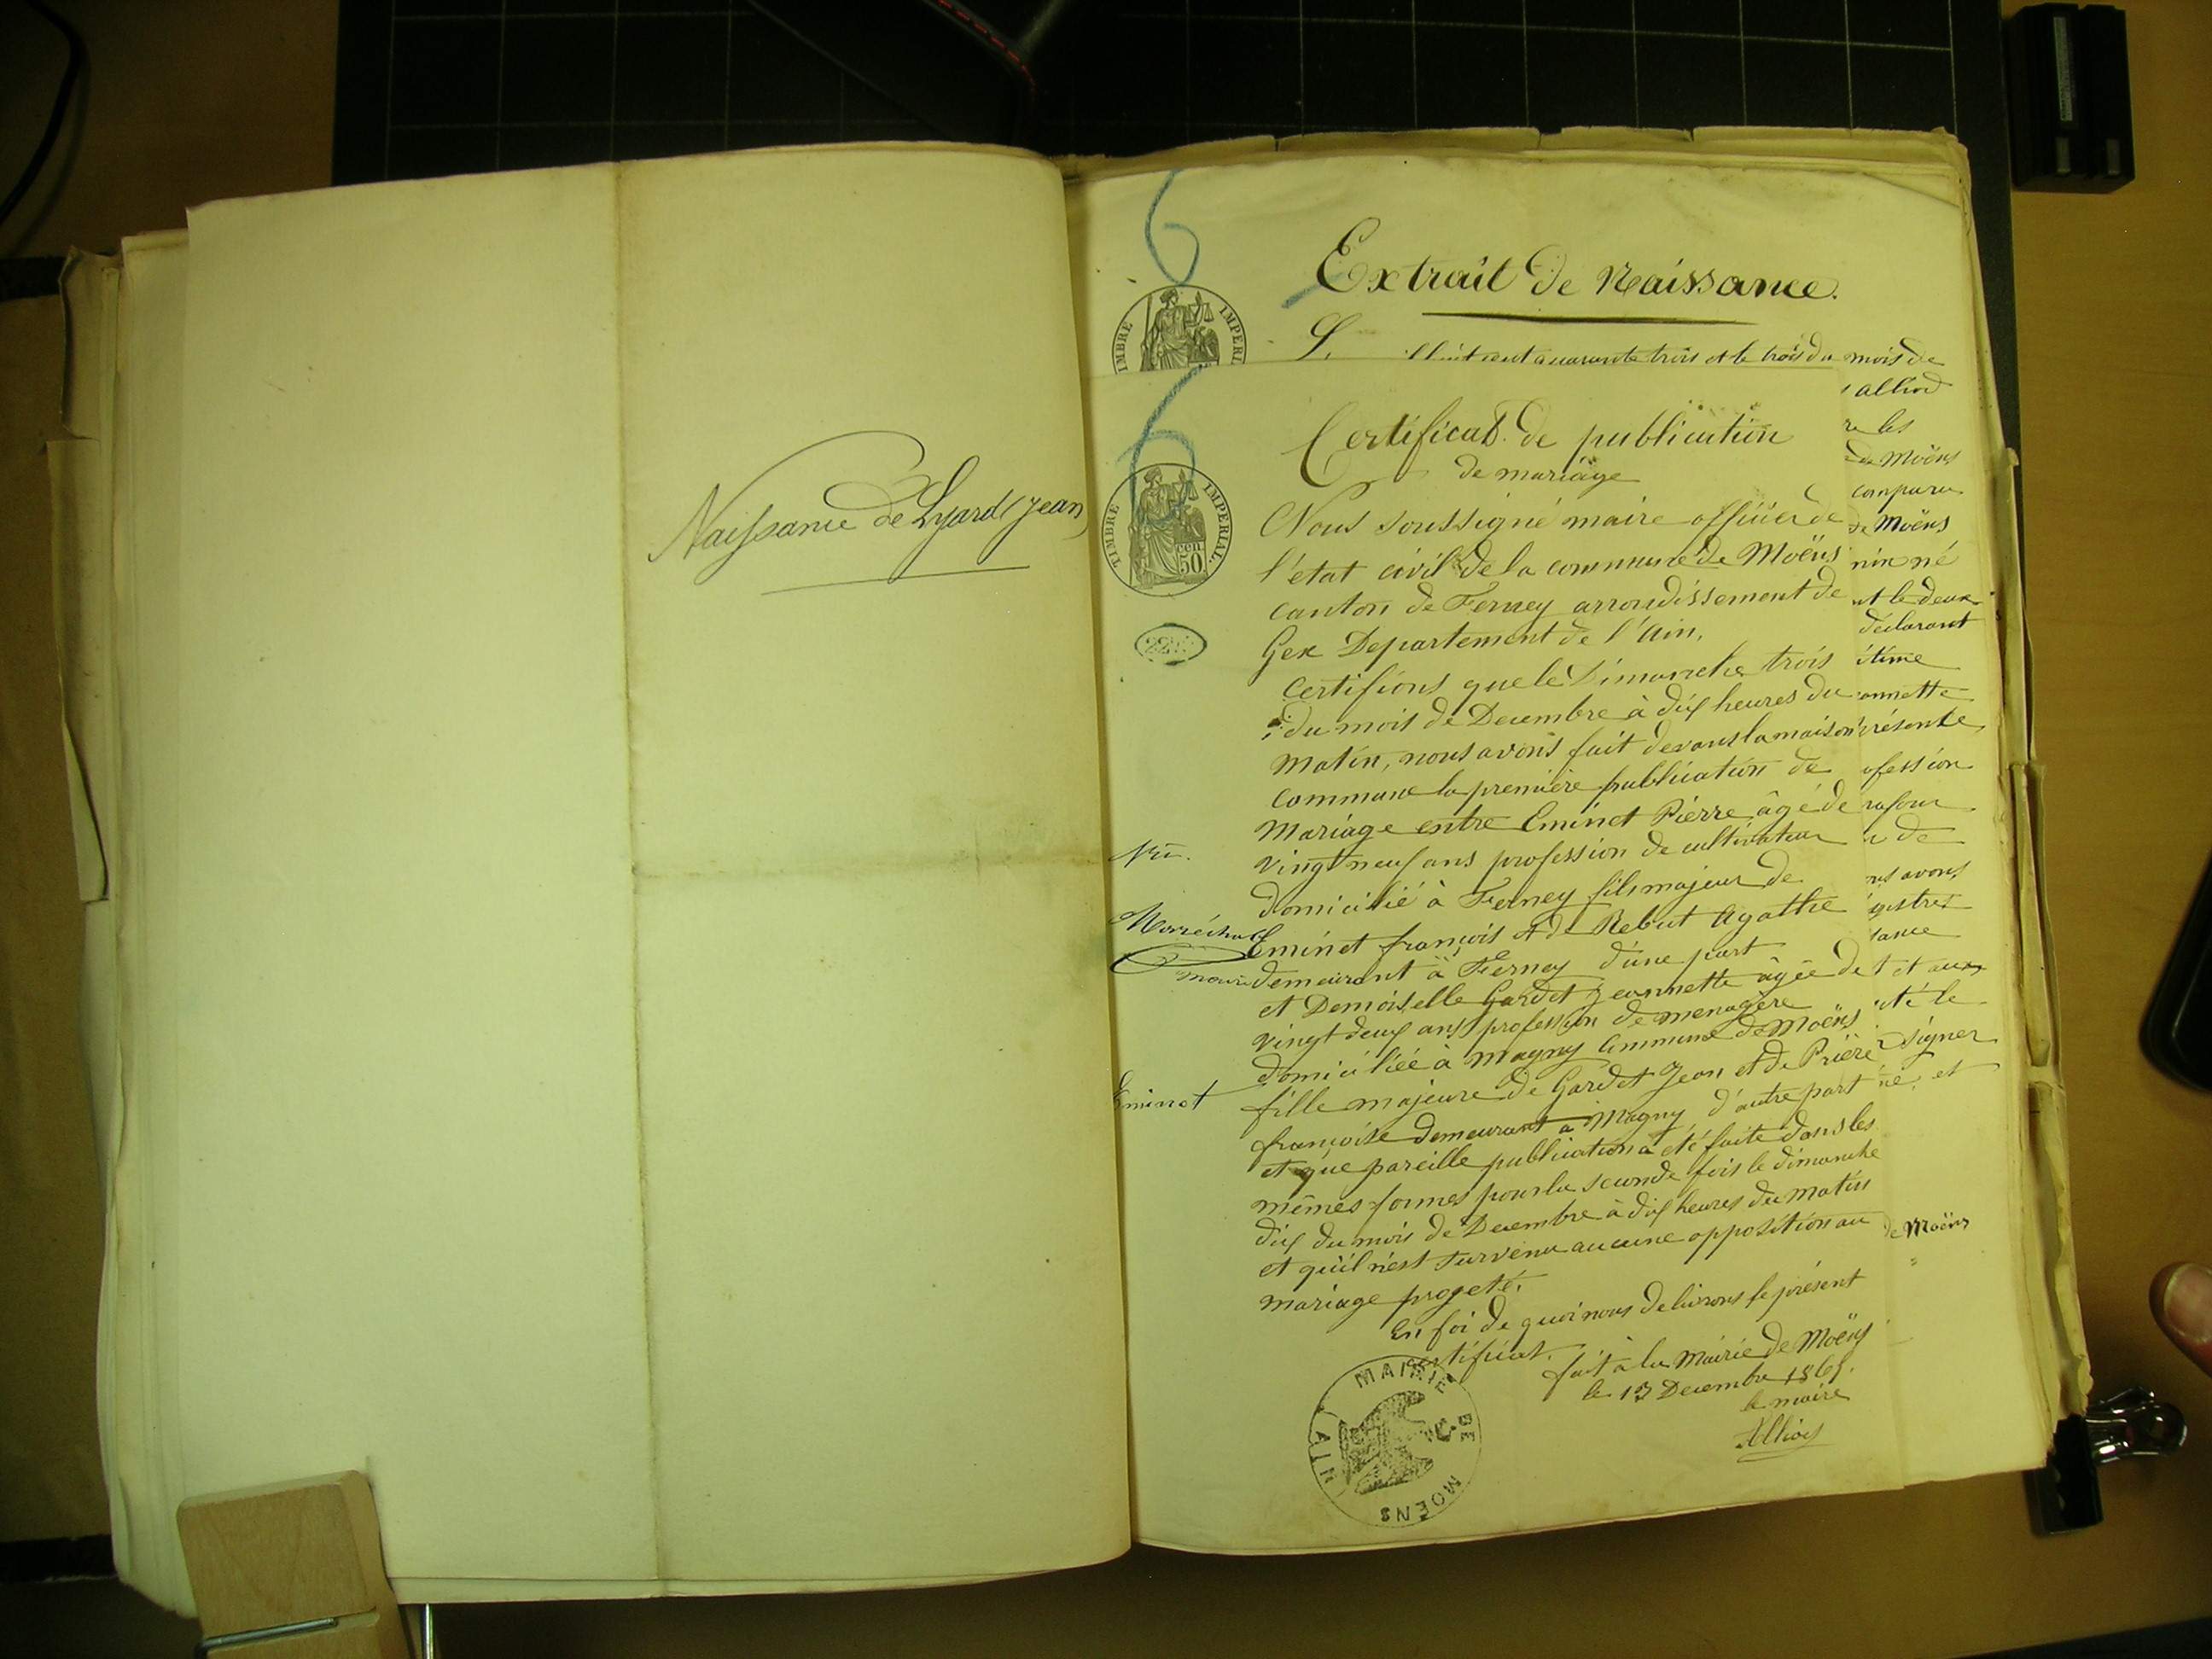 Naissance de Lyard Jean
6
Extrait de Naissance.
TIMBRE IMPERIAL
huit cent quarante trois et le trois du mois de
alliod
les
de Moëns
comparu
de Moëns
né
et le deux
déclarant
présente
profession
de
avons
et aux
été le
signer
et
de Moëns
6
TIMBRE IMPERIAL.
cen 50
Certificat de publication
de mariage
Nous soussigné maire officier de
l'état civil de la commune de Moëns
canton de Ferney arrondissement de
Gex Departement de l'Ain,
Certifions que le Dimanche trois
du mois de Decembre à dix heures du
matin, nous avons fait devant la maison
commune la première publication de
Mariage entre Eminet Pierre âgé de
vingt neuf ans profession de cultivateur
domicilié à Ferney fils majeur de
Eminet françois et de Rebut Agathe
demeurant à Ferney d'une part
et Demoiselle Gardet Jeannette âgée de
vingt deux ans profession de menagère
domiciliée à Magny Commune de Moëns
fille majeure de Gardet Jean et de Prière
françoise demeurant à Magny d'autre part
et que pareille publication a été faite dans les
mêmes formes pour la seconde fois le dimanche
dix du mois de Decembre à dix heures du matin
et qu'il n'est survenu aucune opposition au
mariage projeté.
En foi de quoi nous delivrons le présent
certificat.
fait à la Mairie de Moëns
le 13 Decembre 1865.
le maire
Alliod
Vu.
Maréchal
maire
Eminet
MAIRIE DE MOËNS
AIN